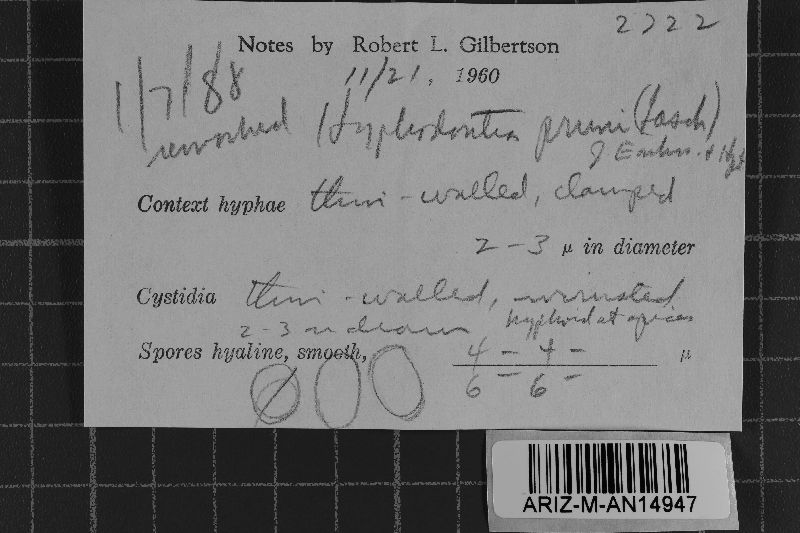 2722
Notes by Robert L. Gilbertson
11/21, 1960
1/7/88
reworked Hyphodontia pruni (Lasch)
J Erikss. & Hjt
Context hyphae thin-walled, clamped
2-3 μ in diameter
Cystidia thin-walled,
hyphoid at apices
2-3 u diam
Spores hyaline, smooth, 4- 4- μ
6- 6-
ARIZ-M-AN14947